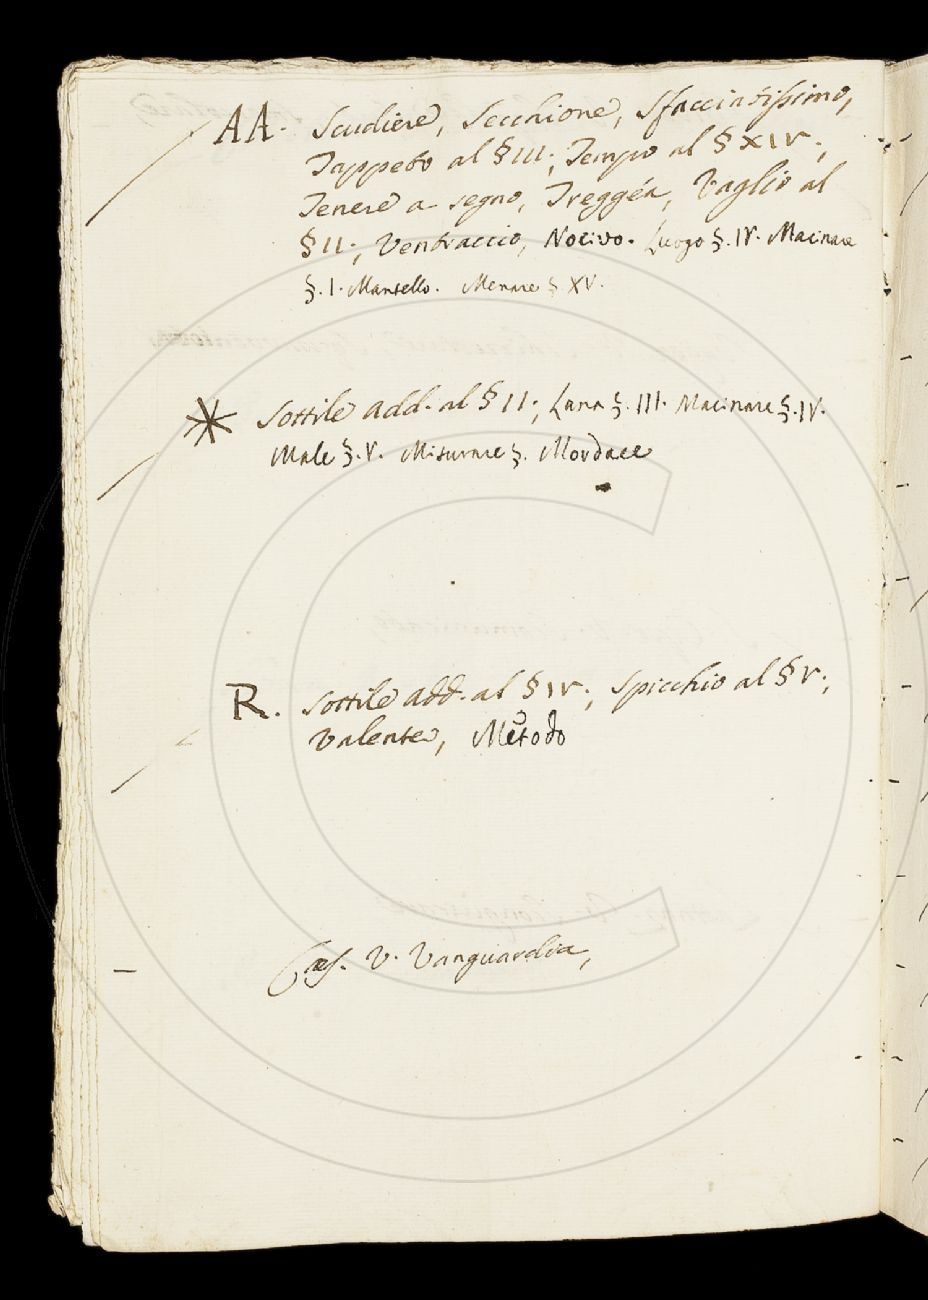 AA. Scudiere, Secchione, Sfacciatissimo,
Tappeto al § III; Tempo al § XIV.;
Tenere a segno, Treggéa, Vaglio al
§ II; Ventraccio, Nocivo. Luogo §. IV. Macinare
§. I. Mantello. Menare § XV.
* Sottile add. al § II; Lana §. III. Macinare §. IV.
Male §. V. Misurare §. Mordace
R. Sottile add. al § IV.; Spicchio al § V.;
Valente, Metodo
V. Vanguardia,